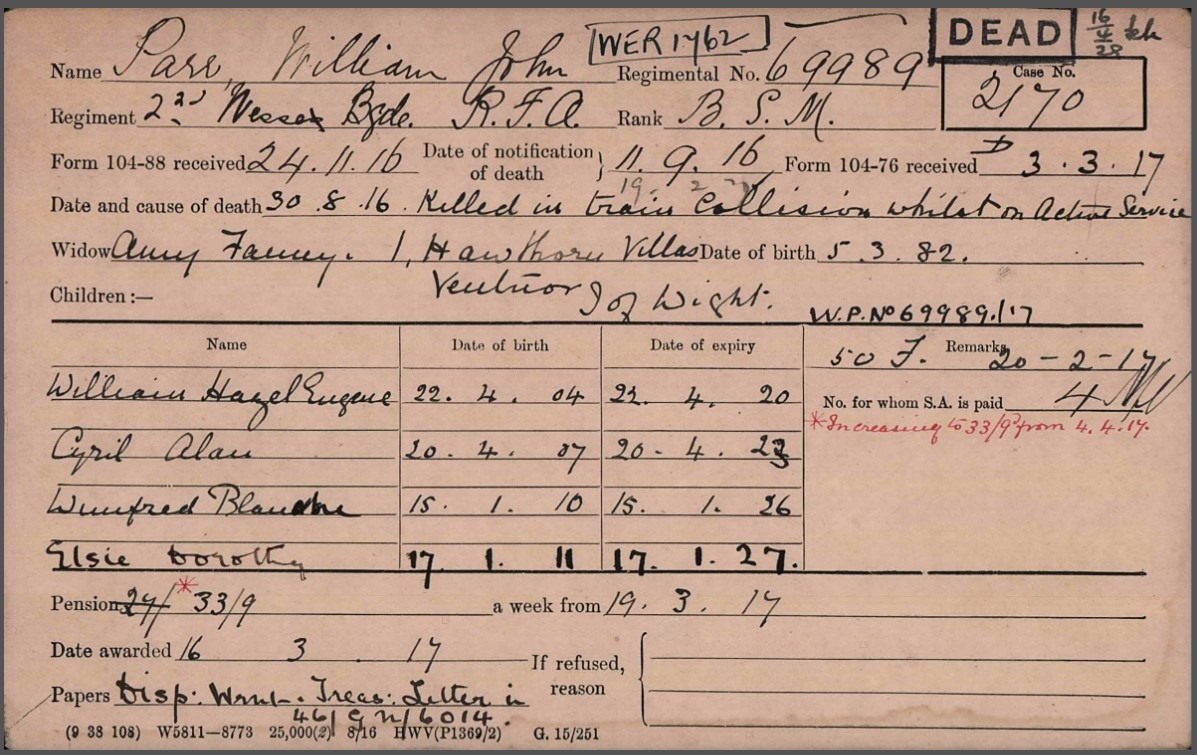 WER 1762 DEAD 16/4/28
Name Parr, William John Regimental No. 69989 Case No. 2170
Regiment 2nd Wessex Bgde. R.F.A. Rank B. S. M.
Form 104-88 received 24.11.16 Date of notification of death } 11. 9. 16 Form 104-76 received 3.3.17
Date and cause of death 30.8.16. Killed in train Collision whilst on Active Service
Widow Amy Fanny. 1, Hawthorn Villas Date of birth 5.3.82.
Ventnor I of Wight.
Children :— W.P. No 69989./17
Name Date of birth Date of expiry 50 F. Remarks 20-2-17
William Hazel Eugene 22. 4. 04 22. 4. 20 No. for whom S.A. is paid 4
*Increasing to 33/9 from 4.4.17.
Cyril Alan 20. 4. 07 20. 4. 23
Winifred Blanche 15. 1. 10 15. 1. 26
Elsie Dorothy 17. 1. 11 17. 1. 27.
Pension 27/ * 33/9 a week from 19. 3. 17
Date awarded 16 3 17 If refused, reason
Papers Disp: Wrnt. Treas: Letter in
46/Gn/6014.
(9 38 108) W5811—8773 25,000(2) 8/16 HWV(P1369/2) G. 15/251